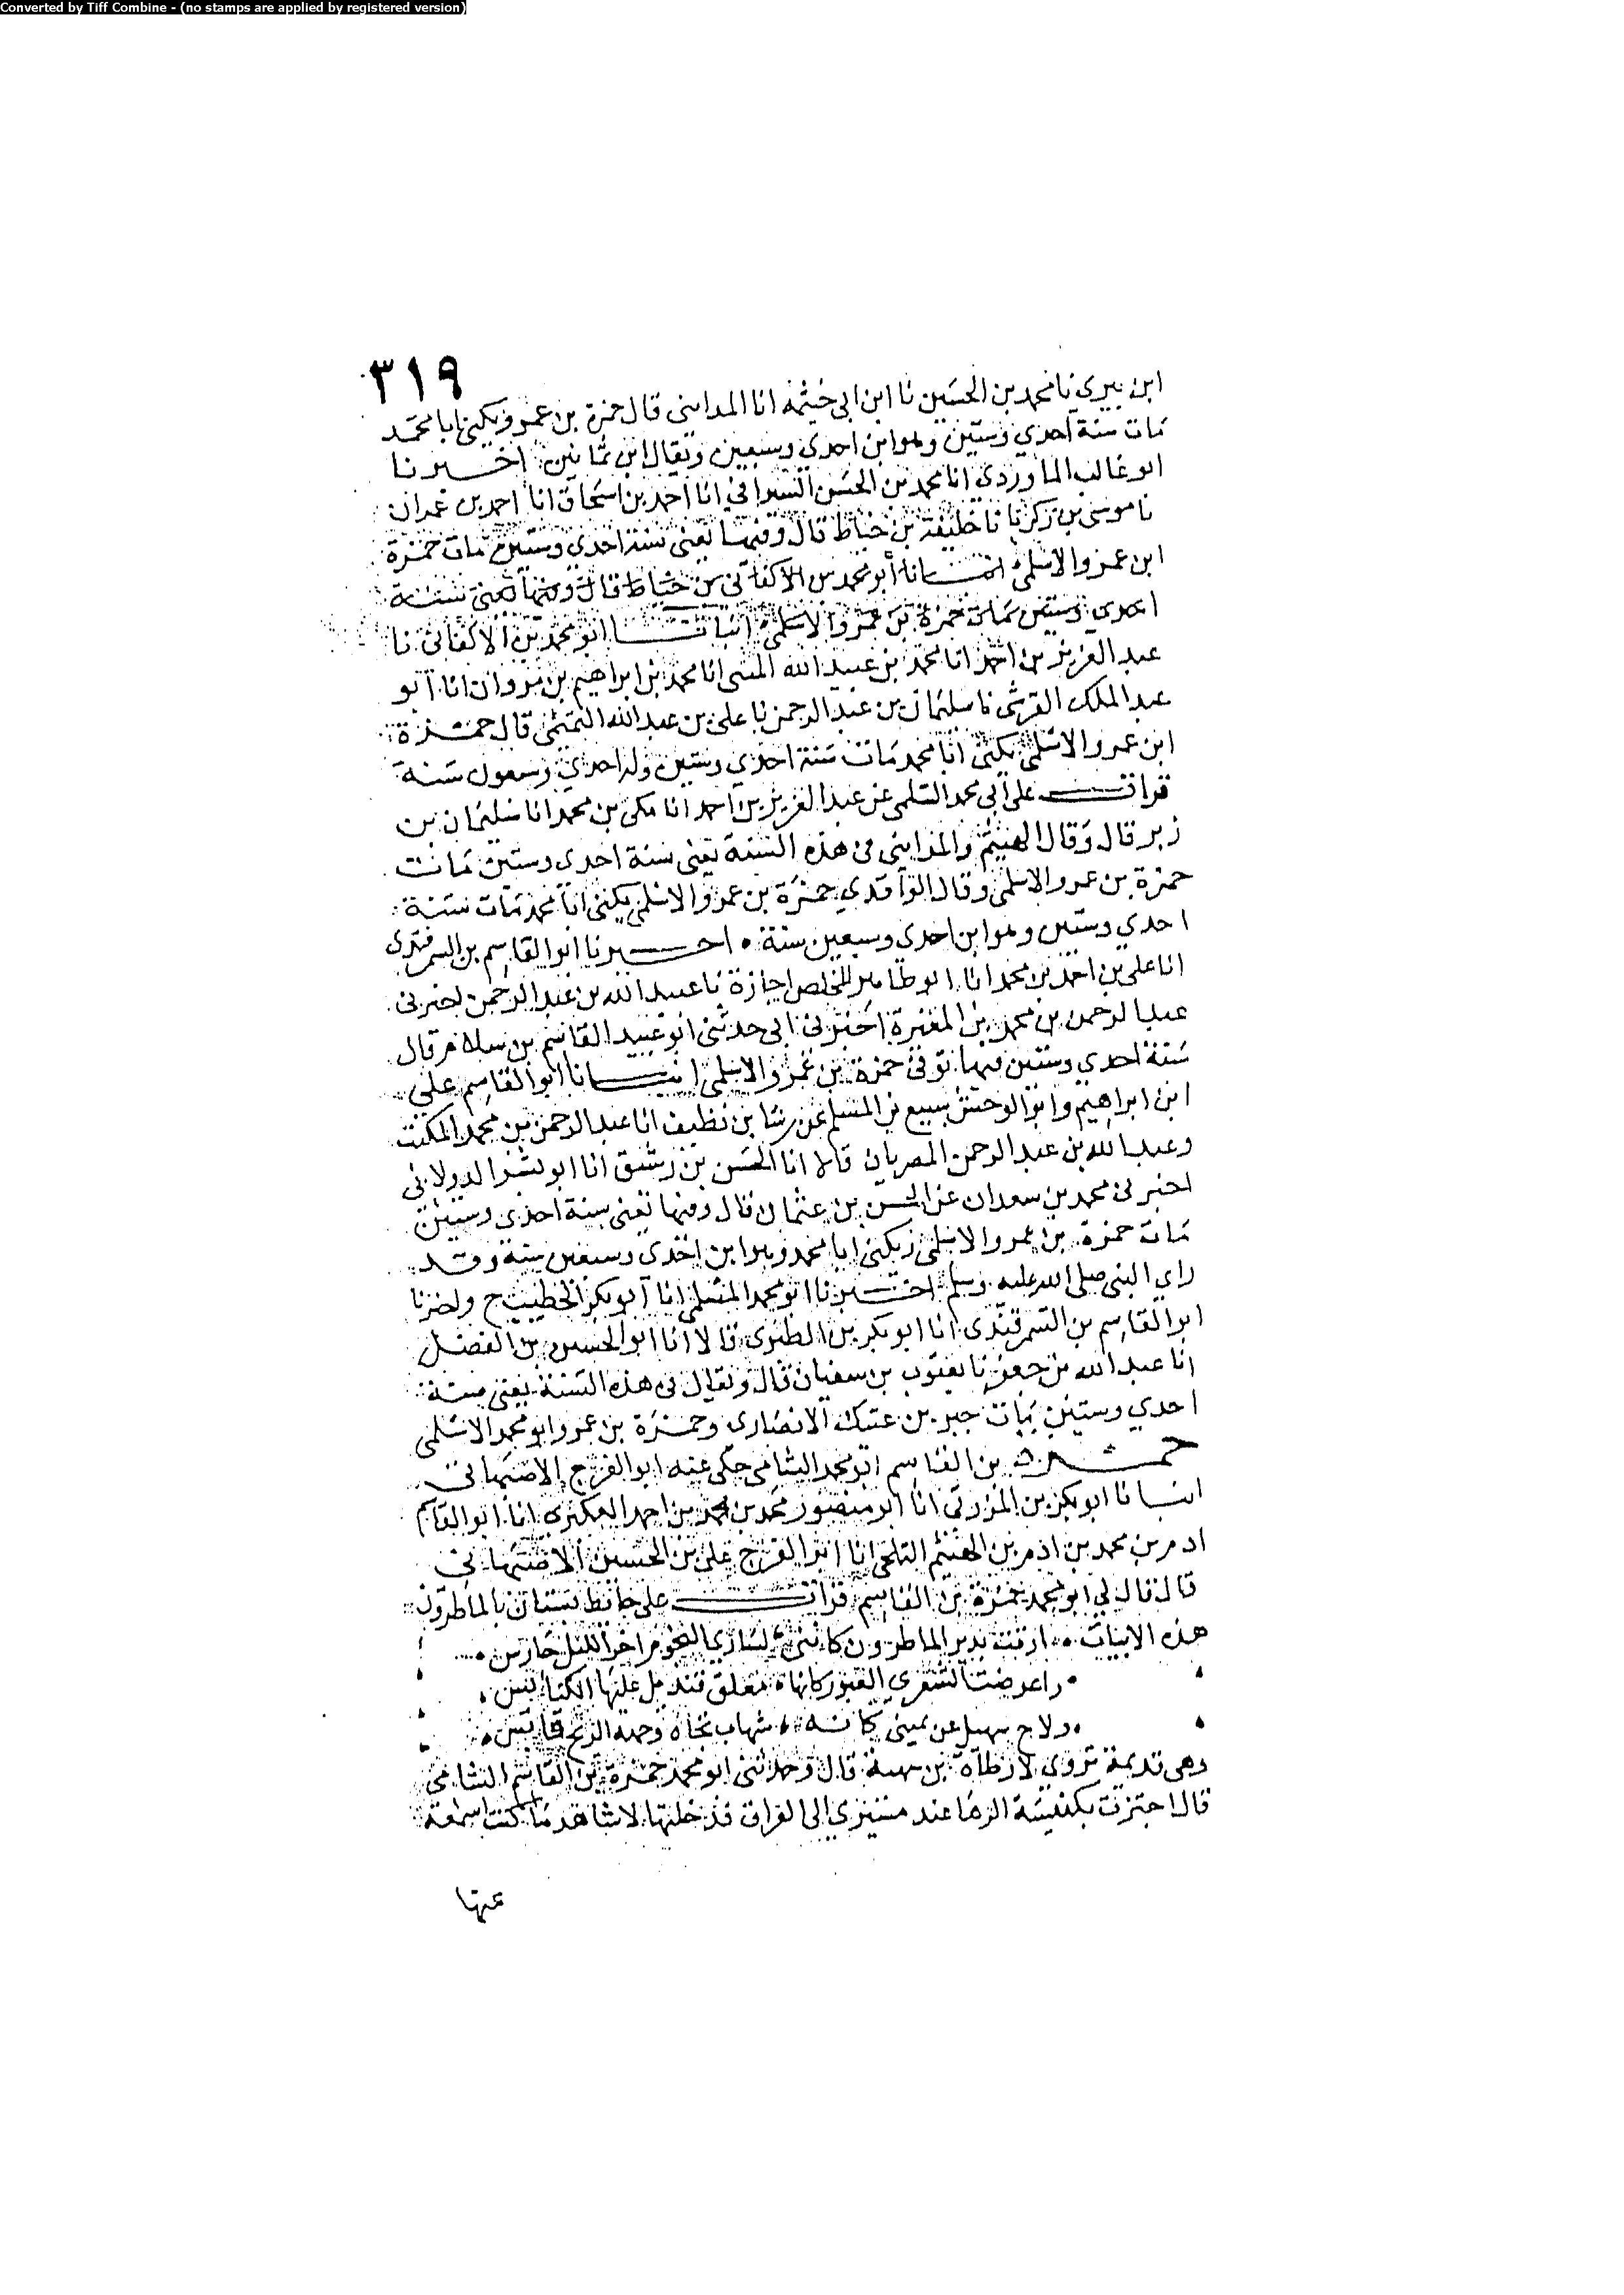 Converted by Tiff Combine - (no stamps are applied by registered version)
٣١٩
ابن بيرى نا محمد بن الحسين نا ابن ابى خيثمة انا المداينى قال حمزة بن عمرو يكنى ابا محمد
مات سنة احدى وستين وهو ابن احدى وسبعين ويقال ابن ثمانين اخبرنا
ابو غالب الماوردى انا محمد بن الحسن السيرافي انا احمد بن اسحاق انا احمد بن عمران
نا موسى بن زكريا نا خليفة بن خياط قال وفيها يعنى سنة احدى وستين مات حمزة
ابن عمرو الاسلمى انبانا أبو محمد بن الاكفانى بن خياط قال وفيها يعنى سنة
احدى وستين مات حمزة بن عمرو الاسلمى انبانا ابو محمد بن الاكفانى نا
عبد العزيز بن احمد انا محمد بن عبيد الله المنينى انا محمد بن ابراهيم بن مروان انا أبو
عبد الملك القرشى نا سليمان بن عبد الرحمن نا على بن عبد الله التميمى قال حمزة
ابن عمرو الاسلمى يكنى ابا محمد مات سنة احدى وستين وله احدى وسبعون سنة
قرات على أبى محمد السلمى عن عبد العزيز بن احمد انا مكى بن محمد انا سليمان بن
زبر قال وقال الهيثم والمداينى فى هذه السنة يعنى سنة احدى وستين مات
حمزة بن عمرو الاسلمى وقال الواقدي حمزة بن عمرو الاسلمى يكنى ابا محمد مات سنة
احدي وستين وهو ابن احدى وسبعين سنة اخبرنا ابو القاسم بن السمرقندى
انا على بن احمد بن محمد انا ابو طاهر المخلص اجازة نا عبيد الله بن عبد الرحمن اخبرنى
عبد الرحمن بن محمد بن المغيرة اخبرنى ابى حدثنى ابو عبيد القاسم بن سلام قال
سنة احدى وستين فيها توفى حمزة بن عمرو الاسلمى انبانا ابو القاسم على
ابن ابراهيم وابو الوحش سبيع بن المسلم عن رشا بن نظيف انا عبد الرحمن بن محمد المكتب
وعبد الله بن عبد الرحمن المصريان قالا انا الحسن بن رشيق انا ابو بشر الدولابى
اخبرنى محمد بن سعدان عن الحسن بن عثمان قال وفيها يعنى سنة احدى وستين
مات حمزة بن عمرو الاسلمى ويكنى ابا محمد وهو ابن احدى وسبعين سنة وقد
راى النبى صلى الله عليه وسلم اخبرنا ابو محمد السلمى انا أبو بكر الخطيب ح واخبرنا
ابو القاسم بن السمرقندى انا ابو بكر بن الطبرى قالا انا ابو الحسين بن الفضل
انا عبد الله بن جعفر نا يعقوب بن سفيان قال ويقال فى هذه السنة يعنى سنة
احدي وستين مات جبر بن عتيك الانصارى وحمزة بن عمرو ابو محمد الاسلمى
حمزة بن القاسم ابو محمد الشامى حكى عنه ابو الفرج الاصبهانى
انبانا ابو بكر بن المزرفى انا ابو منصور محمد بن محمد بن احمد العكبرى انا ابو القاسم
ادم بن محمد بن ادم بن الهيثم التلحى انا ابو الفرج على بن الحسين الاصبهانى
قال قال لي ابو محمد حمزة بن القاسم قرات على حائط بستان بالماطرون
هذه الابيات ارقت بدير الماطرون كاننى لسارى النجوم اخر الليل حارس
واعرضت الشعرى العبور كانها معلق قنديل عليها الكنائس
ولاح سهيل عن يمينى كانه شهاب نحاه وجهة الريح قابس
وهى قديمة تروى لارطاة بن سهية قال وحدثنى ابو محمد حمزة بن القاسم الشامى
قال اجتزت بكنيسة الرها عند مسيرى الى العراق فدخلتها لاشاهد ما كنت اسمعه
عنها